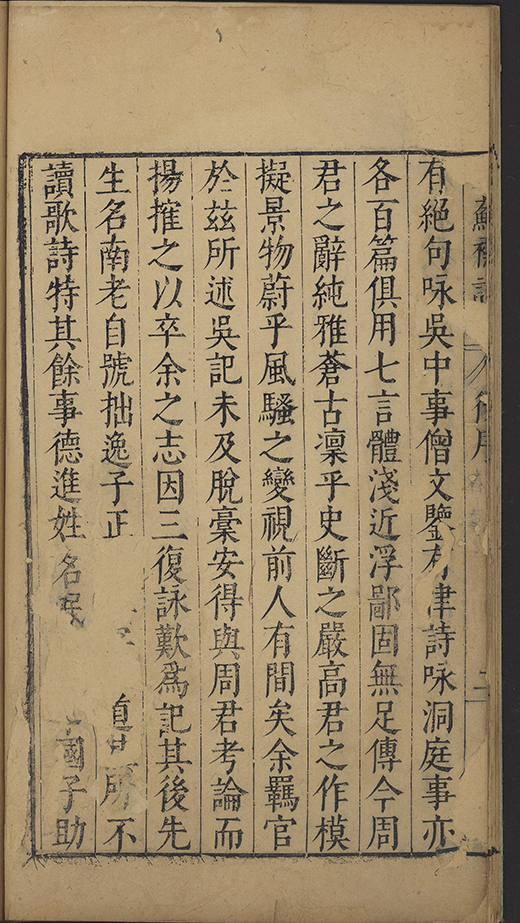 蘇 二
有絕句咏吳中事僧文鑒有津詩咏洞庭事亦
各百篇俱用七言體淺近浮鄙固無足傳今周
君之辭純雅蒼古凛乎史斷之嚴高君之作模
擬景物蔚乎風騷之變視前人有間矣余羈官
於兹所述吳記未及脫稾安得與周君考論而
揚搉之以卒余之志因三復詠歎爲記其後先
生名南老自號拙逸子正 所不
讀歌詩特其餘事德進姓名 國子助